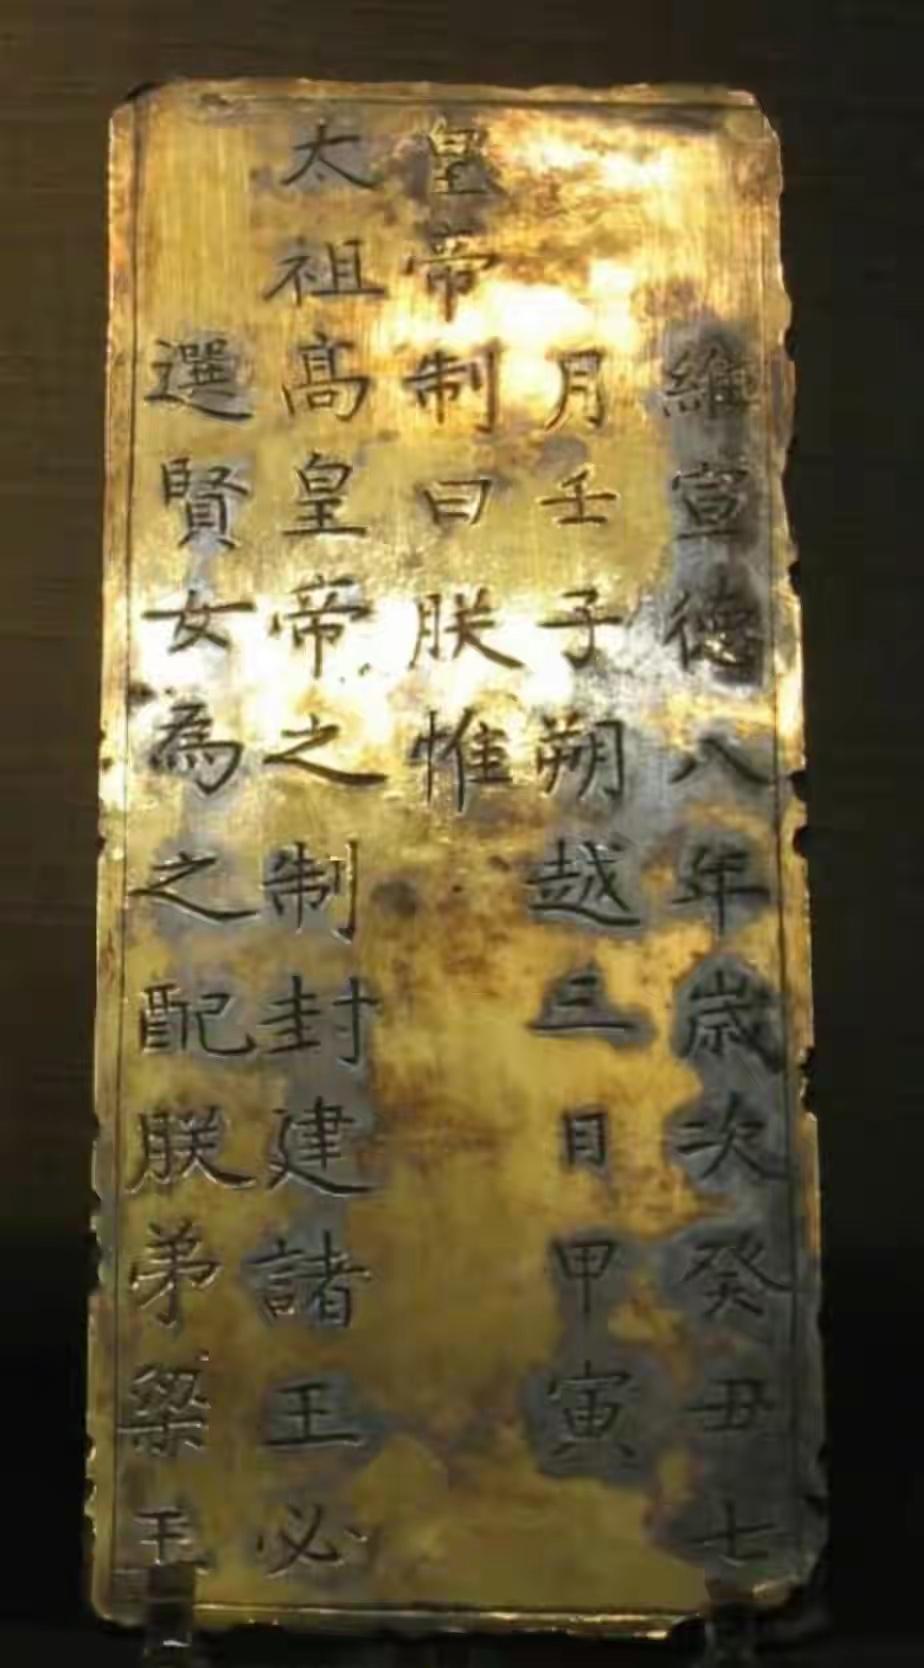 維宣德八年歲次癸丑七
月壬子朔越三日甲寅
皇帝制曰朕惟
太祖高皇帝之制封建諸王必
選賢女為之配朕弟梁王